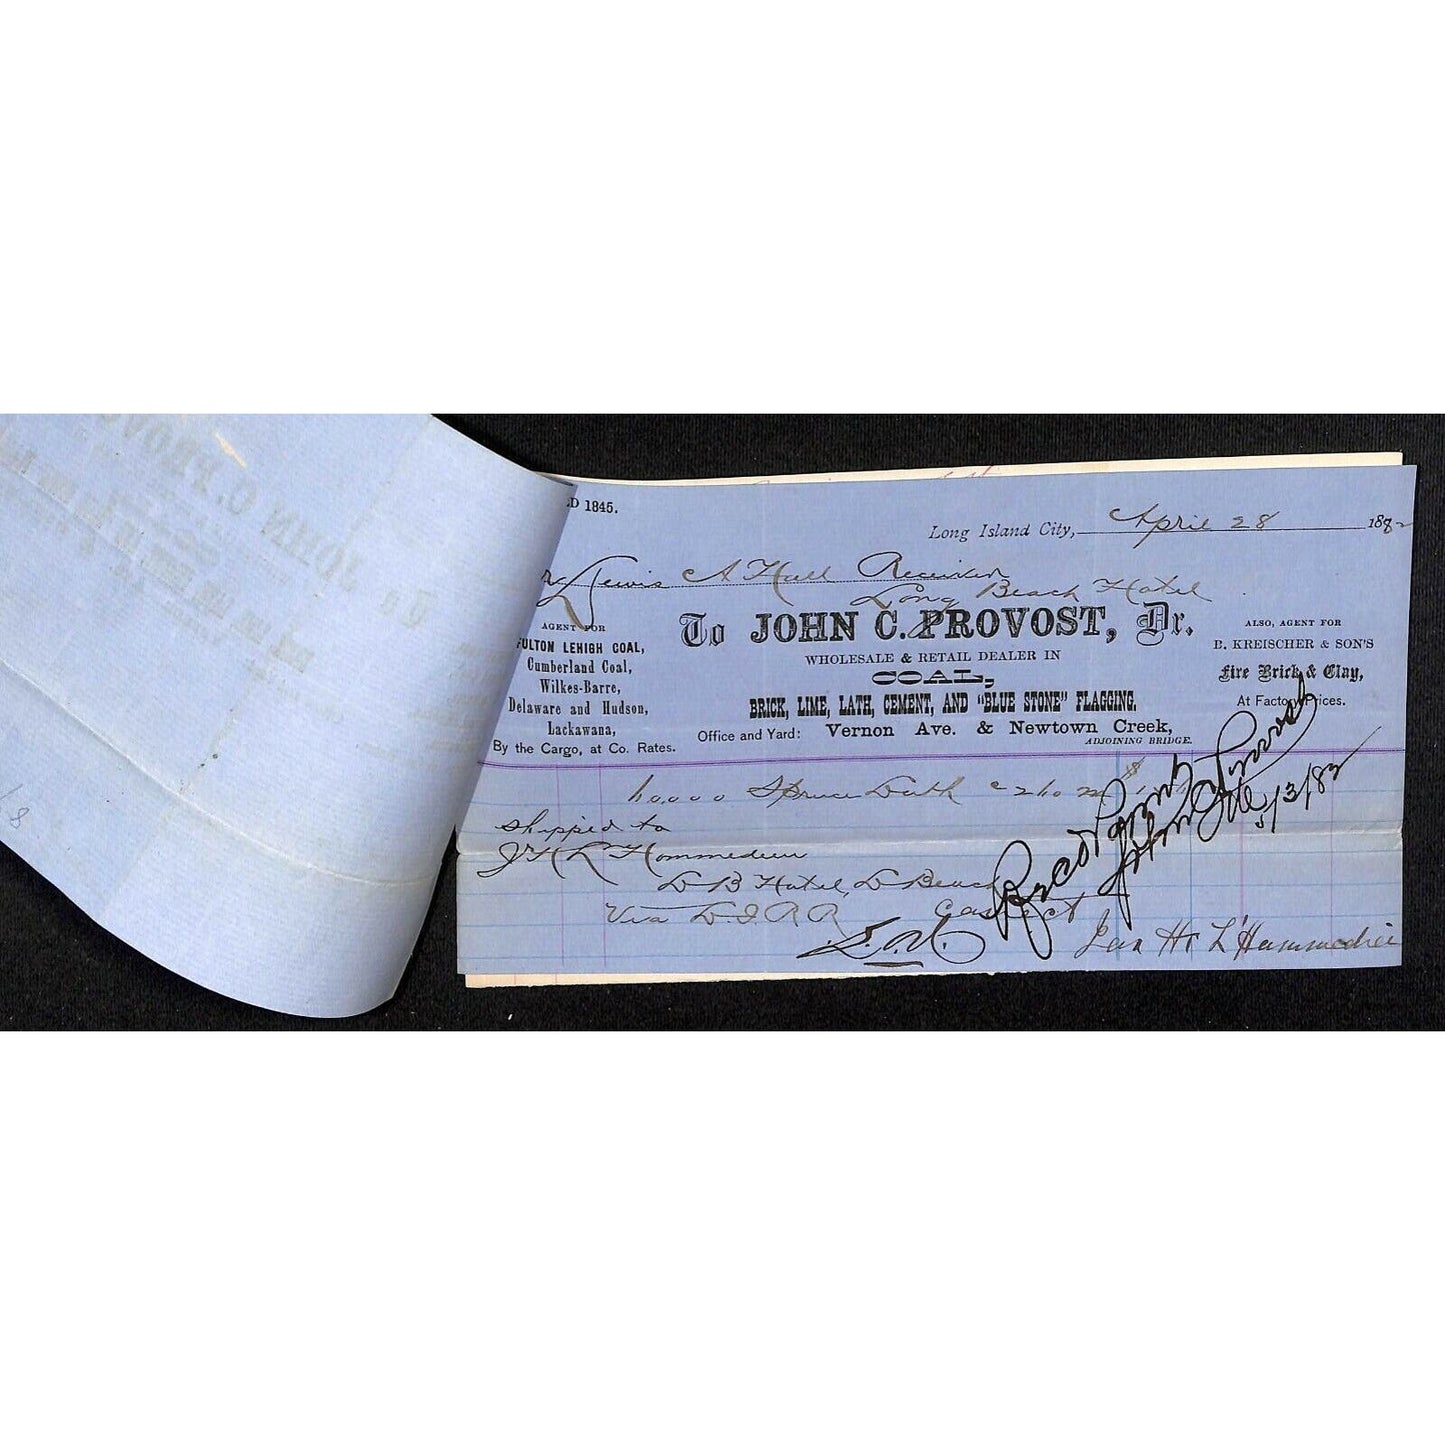 D 1845.
Long Island City, April 28 1882
Lewis A Hall Receiver
Long Beach Hotel
To JOHN C. PROVOST, Dr.
WHOLESALE & RETAIL DEALER IN
COAL,
BRICK, LIME, LATH, CEMENT, AND "BLUE STONE" FLAGGING.
Office and Yard: Vernon Ave. & Newtown Creek,
ADJOINING BRIDGE.
AGENT FOR
FULTON LEHIGH COAL,
Cumberland Coal,
Wilkes-Barre,
Delaware and Hudson,
Lackawana,
By the Cargo, at Co. Rates.
ALSO, AGENT FOR
B. KREISCHER & SON'S
Fire Brick & Clay,
At Factory Prices.
Spruce Lath
Shipped to
J H L'Hommedieu
L B Hotel, L Beach
Via L.I.R.R
Recd Payment
John C Provost
5/3/82
Jan H. L'Hommedieu
JOHN C. PROVO